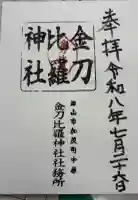 奉拝 令和八年七月二十六日
金刀
比羅
神社
津山市加茂町中原
金刀比羅神社社務所